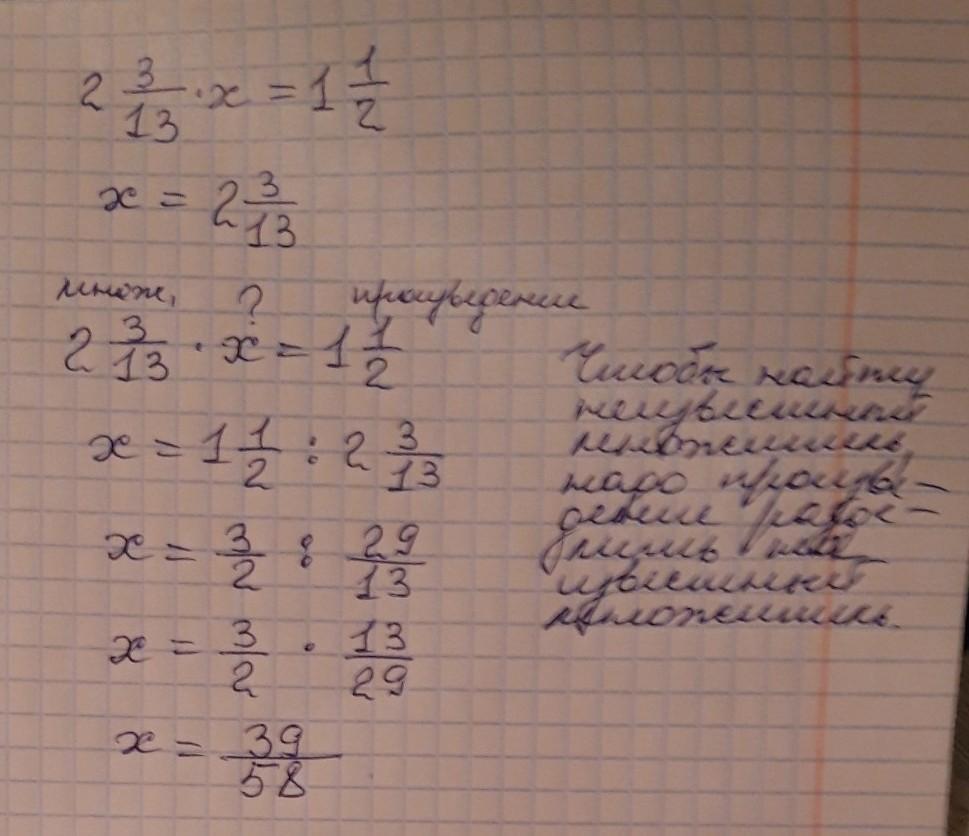 2 3/13 · x = 1 1/2
x = 2 3/13
множ. ? произведение
2 3/13 · x = 1 1/2
x = 1 1/2 : 2 3/13
x = 3/2 : 29/13
x = 3/2 · 13/29
x = 39/58
Чтобы найти
неизвестный
множитель,
надо произве-
дение разде-
лить на
известный
множитель.